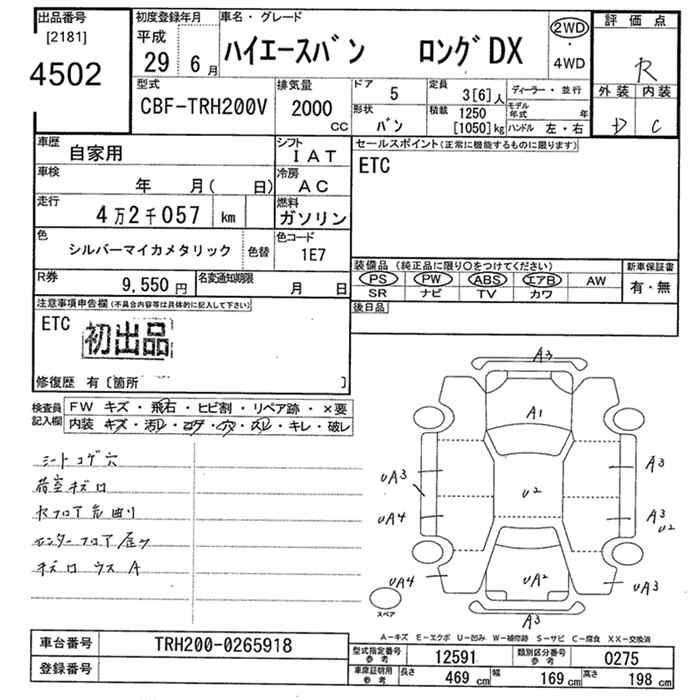 出品番号
[2181]
4502
初度登録年月
平成
29 6月
車名・グレード
ハイエースバン ロングDX
2WD
・
4WD
評価点
R
外装 内装
D C
型式
CBF-TRH200V
排気量
2000
CC
ドア
5
定員
3[6]人
ディーラー・並行
形状
バン
積載
1250
[1050]kg
モデル年式 年
ハンドル 左・右
車歴
自家用
シフト
IAT
車検
年 月( 日)
冷房
AC
走行
4万2千057 km
燃料
ガソリン
色
シルバーマイカメタリック
色替
色コード
1E7
R券
9,550円
名変通知期限
月 日
セールスポイント(正常に機能するものに限ります)
ETC
装備品 (純正品に限り〇をつけてください)
PS PW ABS エアB AW
SR ナビ TV カワ
新車保証書
有・無
後日品
注意事項申告欄(不具合内容等は具体的に記入して下さい)
ETC
初出品
修復歴 有〔箇所 〕
検査員
記入欄
FW キズ・飛石・ヒビ割・リペア跡・×要
内装 キズ・汚レ・コゲ・穴・スレ・キレ・破レ
シートコゲ穴
荷室キズロ
センターフロア
A3
A1
UA3
A3
U2
UA4
A3
U2
UA4
UA2
UA3
A3
スペア
A-キズ E-エクボ U-凹み W-補修跡 S-サビ C-腐食 XX-交換済
車台番号
TRH200-0265918
登録番号
型式指定番号
参考
12591
類別区分番号
参考
0275
車庫証明用
参考
長さ
469 cm
幅
169 cm
高さ
198 cm